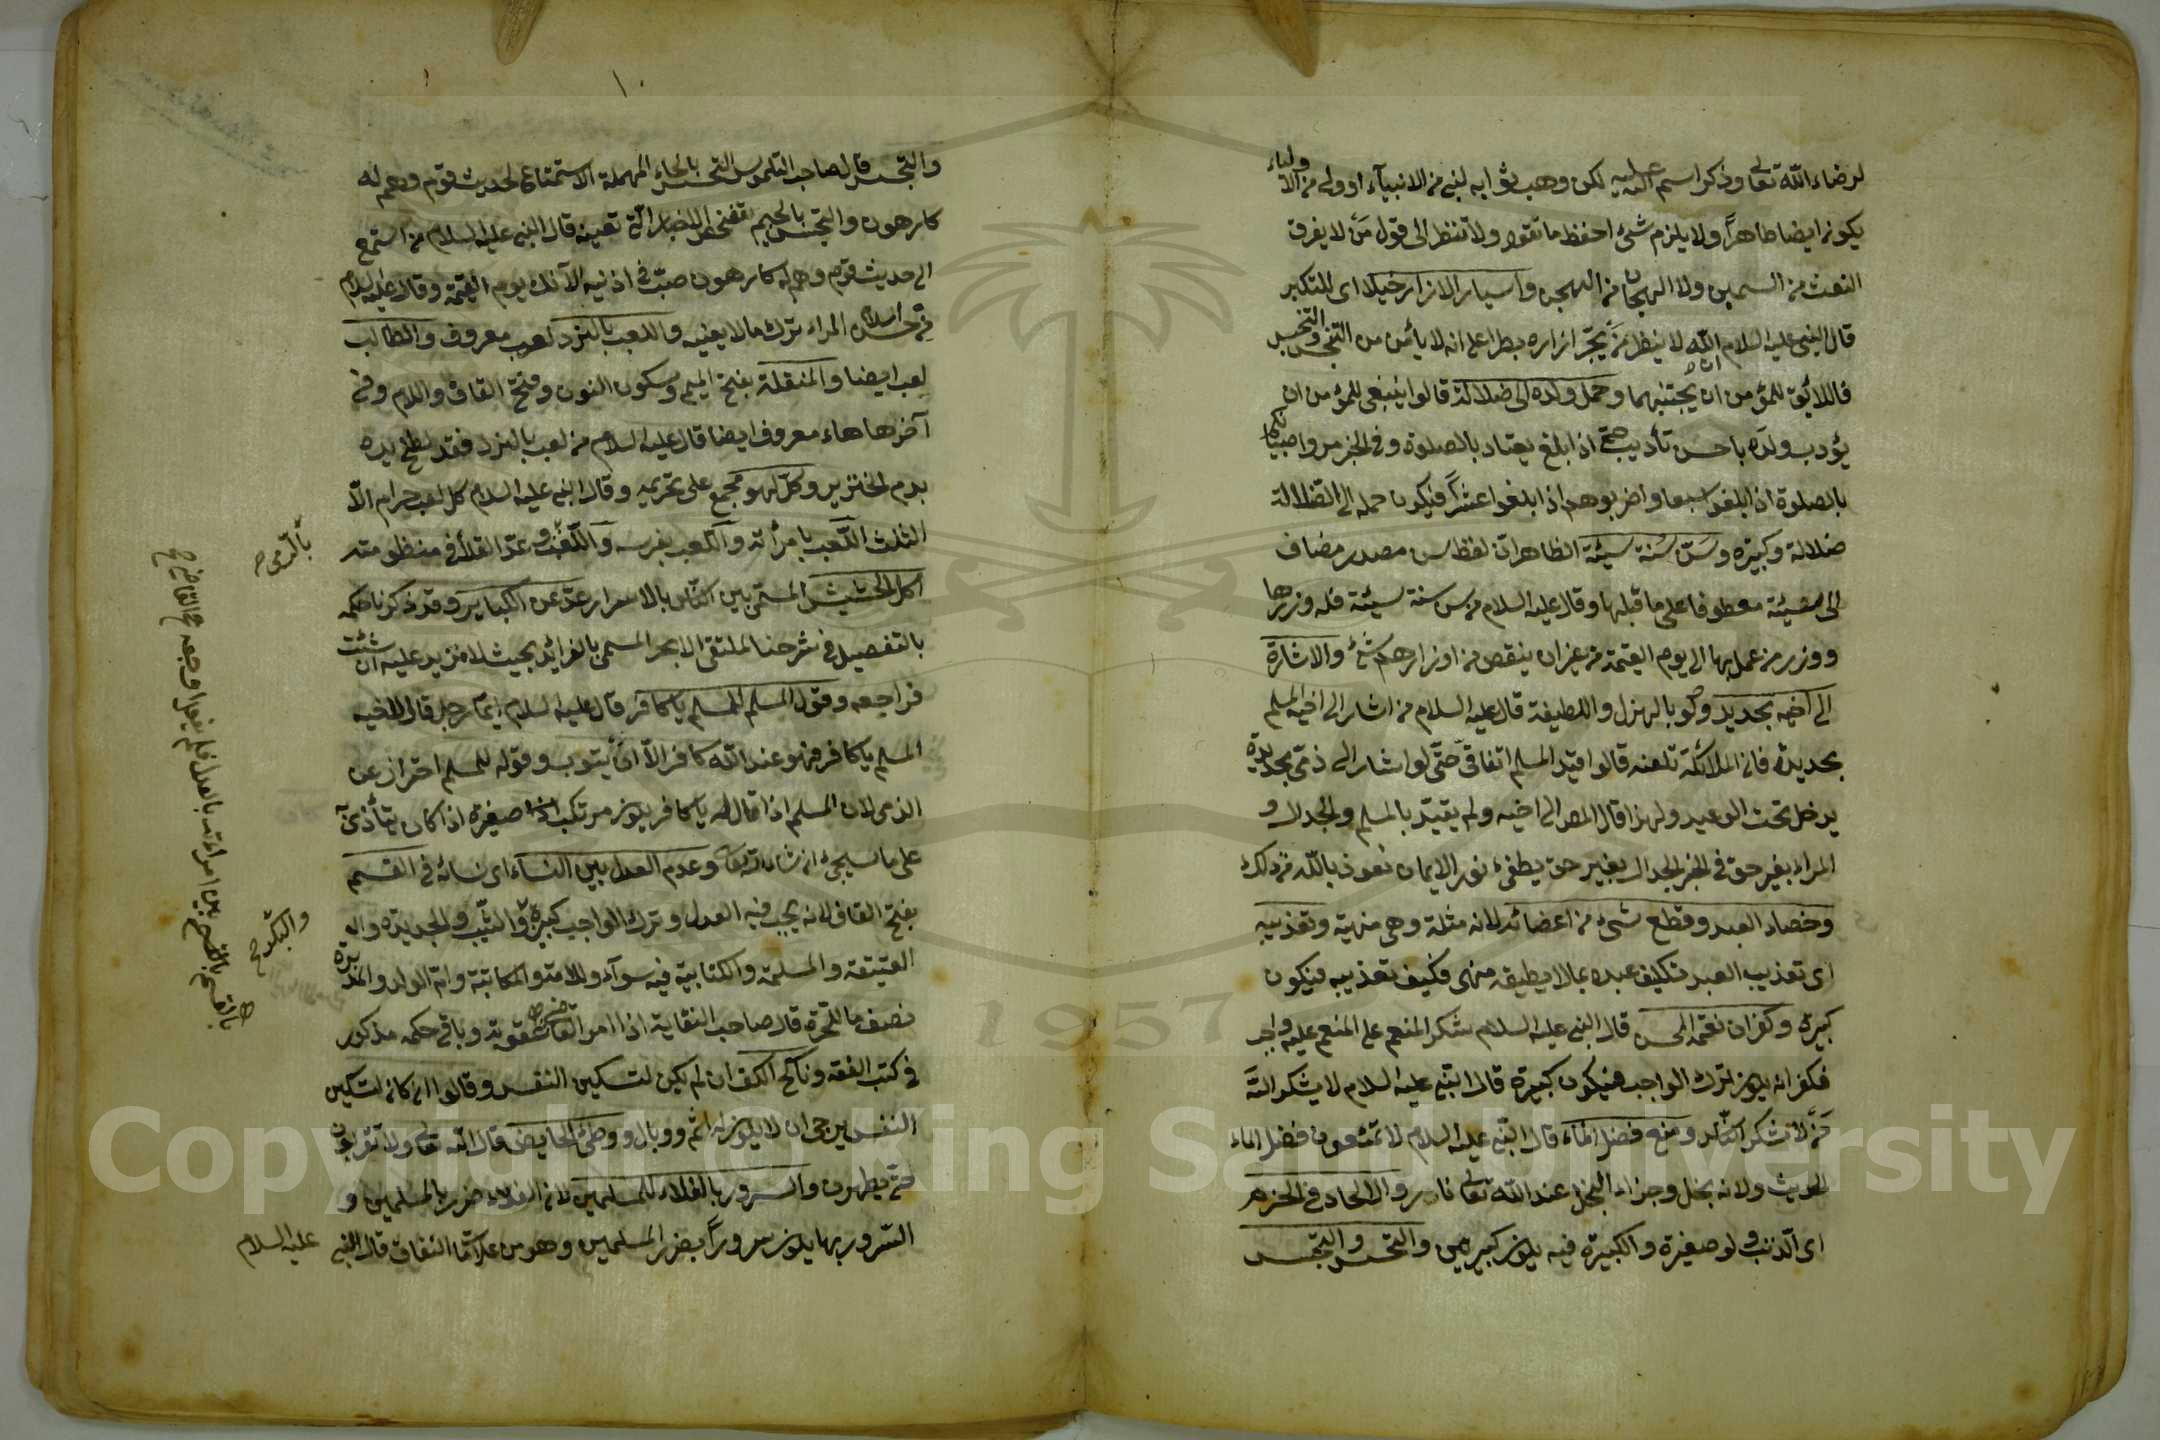 لرضاء الله تعالى وذكر اسم الله عليه لكن وهب ثوابه لنبي من الانبياء او ولي من الاولياء
يكون ايضا طاهرا ولا يلزم شئ احفظ ما نقول ولا تنظر الى قول من لا يفرق
الغث من السمين ولا الهجان من الهجين واسبال الازار خيلاء اى للتكبر
قال النبي عليه السلام ان الله لا ينظر من يجر ازاره بطرا على انه لا يأمن من التنجس
فاللائق للمؤمن ان يجتنبهما وحمل ولده الى ضلالة قالوا ينبغى للمؤمن ان
يؤدب ولده باحسن تأديب حتى اذا بلغ يعتاد بالصلوة وفى الخبر مروا صبيانكم
بالصلوة اذا بلغوا سبعا واضربوهم اذا بلغوا عشرا فيكون حمله الى الضلالة
ضلالة وكبيرة وسن سنة سيئة الظاهر ان لفظ سن مصدر مضاف
الى سيئة معطوفا على ما قبلها وقال عليه السلام من سن سنة سيئة فله وزرها
ووزر من عمل بها الى يوم القيمة من غير ان ينقص من اوزارهم شئ والاشارة
الى اخيه بحديد ولو بالهزل واللطيفة قال عليه السلام من اشار الى اخيه المسلم
بحديدة فان الملائكة تلعنه قالوا قيد المسلم اتفاقى حتى لو اشار الى ذمى بحديدة
يدخل تحت الوعيد ولهذا قال المص الى اخيه ولم يقيد بالمسلم والجدال و
المراء بغير حق فى الخبر الجدال بغير حق يطفئ نور الايمان نعوذ بالله من ذلك
وخصاء العبد وقطع شئ من اعضائه لانه مثلة وهى منهية وتعذيبه
اى تعذيب العبد فتكليف عبده بما لا يطيقه منهى فكيف تعذيبه فيكون
كبيرة وكفران نعمة المحسن قال النبي عليه السلام شكر المنعم على المنعم عليه واجب
فكفرانه يكون ترك الواجب فيكون كبيرة قال النبي عليه السلام لا يشكر الله
من لا يشكر الناس ومنع فضل الماء قال النبي عليه السلام لا تمنعون فضل الماء
الحديث ولانه بخل وجزاء البخل عند الله تعالى نار والالحاد فى الحرم
اى الذنب ولو صغيرة والكبيرة فيه يكون كبيرتين والتحسس والتجسس
والتجسس قال صاحب القاموس التحسس بالحاء المهملة الاستمتاع لحديث قوم وهم له
كارهون والتجسس بالجيم تفحص الاخبار قال النبي عليه السلام من استمع
الى حديث قوم وهم له كارهون صب فى اذنيه الآنك يوم القيمة وقال عليه السلام
من حسن اسلام المراء ترك ما لا يعنيه واللعب بالنرد لعب معروف والطالب
لعب ايضا والمنقلة بفتح الميم وسكون النون وفتح القاف واللام وفى
آخرها هاء معروف ايضا قال عليه السلام من لعب بالنرد فقد لطخ يده
بدم الخنزير وكل لهو مجمع على تحريمه وقال النبي عليه السلام كل لعب حرام الا
الثلث اللعب بامرأته واللعب بفرسه واللعب وعد القلأ فى منظومته
اكل الحشيش المسمى بين الناس بالاسرار عد عن الكبائر وقد ذكرنا حكمه
بالتفصيل فى شرحنا الملتقى الابحر المسمى بالفرائد بحيث لا مزيد عليه ان شئت
فراجعه وقول المسلم للمسلم يا كافر قال عليه السلام ايما رجل قال لاخيه
المسلم يا كافر فهو عند الله كافر الا ان يتوب وقوله للمسلم احتراز عن
الذمى لان المسلم اذا قال له يا كافر يكون مرتكب صغيرة اذا كان يتأذى
على ما سيجئ ان شاء الله تعالى وعدم العدل بين النساء اى نسائه فى القسم
بفتح القاف لانه يجب فيه العدل وترك الواجب كبيرة والثيب والجديدة و
العتيقة والمسلمة والكتابية فيه سواء وللامة والمكاتبة وام الولد والمدبرة
نصف ما للحرة قال صاحب النقاية اذا امر القاضى عقوبة وباقى حكمه مذكور
فى كتب الفقه وناكح الكف ان لم يكن لتسكين النفس وقالوا ان كان لتسكين
النفس يرجى ان لا يكون له اثم ووبال ووطئ الحايض قال الله تعالى ولا تقربوهن
حتى يطهرن والسرور بالغلاء للمسلمين لان الغلاء ضرر بالمسلمين و
السرور بها يكون سرورا بضرر المسلمين وهو من علامة النفاق قال النبي
عليه السلام
بالرمى صح
والبكر صح